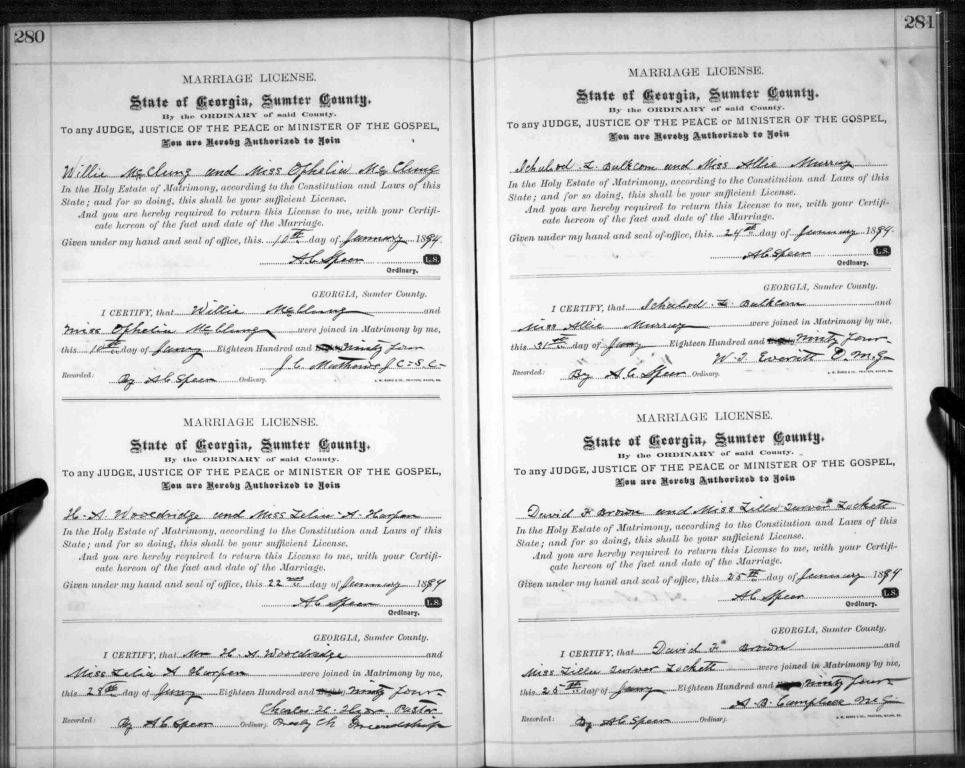 280
MARRIAGE LICENSE.
State of Georgia, Sumter County.
By the ORDINARY of said County.
To any JUDGE, JUSTICE OF THE PEACE or MINISTER OF THE GOSPEL,
You are Hereby Authorized to Join
Willie McClung and Miss Ophelia McClung
In the Holy Estate of Matrimony, according to the Constitution and Laws of this
State; and for so doing, this shall be your sufficient License.
And you are hereby required to return this License to me, with your Certifi-
cate hereon of the fact and date of the Marriage.
Given under my hand and seal of office, this 10th day of January 1894.
A C Speer L.S.
Ordinary.
GEORGIA, Sumter County.
I CERTIFY, that Willie McClung and
Miss Ophelia McClung were joined in Matrimony by me,
this 10th day of Jany Eighteen Hundred and Ninty four
J. C.
Recorded: By A C Speer Ordinary.
MARRIAGE LICENSE.
State of Georgia, Sumter County.
By the ORDINARY of said County.
To any JUDGE, JUSTICE OF THE PEACE or MINISTER OF THE GOSPEL,
You are Hereby Authorized to Join
H. A. Wooldridge and Miss Lelia A. Harpen
In the Holy Estate of Matrimony, according to the Constitution and Laws of this
State; and for so doing, this shall be your sufficient License.
And you are hereby required to return this License to me, with your Certifi-
cate hereon of the fact and date of the Marriage.
Given under my hand and seal of office, this 22nd day of January 1894
A C Speer L.S.
Ordinary.
GEORGIA, Sumter County.
I CERTIFY, that Mr H. A Wooldridge and
Miss Lelia A Harpen were joined in Matrimony by me,
this 28th day of Jany Eighteen Hundred and Ninty four
Charles H. Pastor
Recorded: By A C Speer Ordinary. Presby Ch Friendship
281
MARRIAGE LICENSE.
State of Georgia, Sumter County.
By the ORDINARY of said County.
To any JUDGE, JUSTICE OF THE PEACE or MINISTER OF THE GOSPEL,
You are Hereby Authorized to Join
Ichabod L. Balkcom and Miss Allie Murray
In the Holy Estate of Matrimony, according to the Constitution and Laws of this
State; and for so doing, this shall be your sufficient License.
And you are hereby required to return this License to me, with your Certifi-
cate hereon of the fact and date of the Marriage.
Given under my hand and seal of office, this 24th day of January 1894.
A C Speer L.S.
Ordinary.
GEORGIA, Sumter County.
I CERTIFY, that Ichabod L. Balkcom and
Miss Allie Murray were joined in Matrimony by me,
this 31st day of Jany Eighteen Hundred and Ninty four
W. J. Everett O. M. G
Recorded: By A. C. Speer Ordinary.
MARRIAGE LICENSE.
State of Georgia, Sumter County.
By the ORDINARY of said County.
To any JUDGE, JUSTICE OF THE PEACE or MINISTER OF THE GOSPEL,
You are Hereby Authorized to Join
David F Brown and Miss Lockett
In the Holy Estate of Matrimony, according to the Constitution and Laws of this
State; and for so doing, this shall be your sufficient License.
And you are hereby required to return this License to me, with your Certifi-
cate hereon of the fact and date of the Marriage.
Given under my hand and seal of office, this 25th day of January 1894
A C Speer L.S.
Ordinary.
GEORGIA, Sumter County.
I CERTIFY, that David F Brown and
Miss Lockett were joined in Matrimony by me,
this 25th day of Jany Eighteen Hundred and Ninty four
A. B. Campbell M G
Recorded: By A C Speer Ordinary.